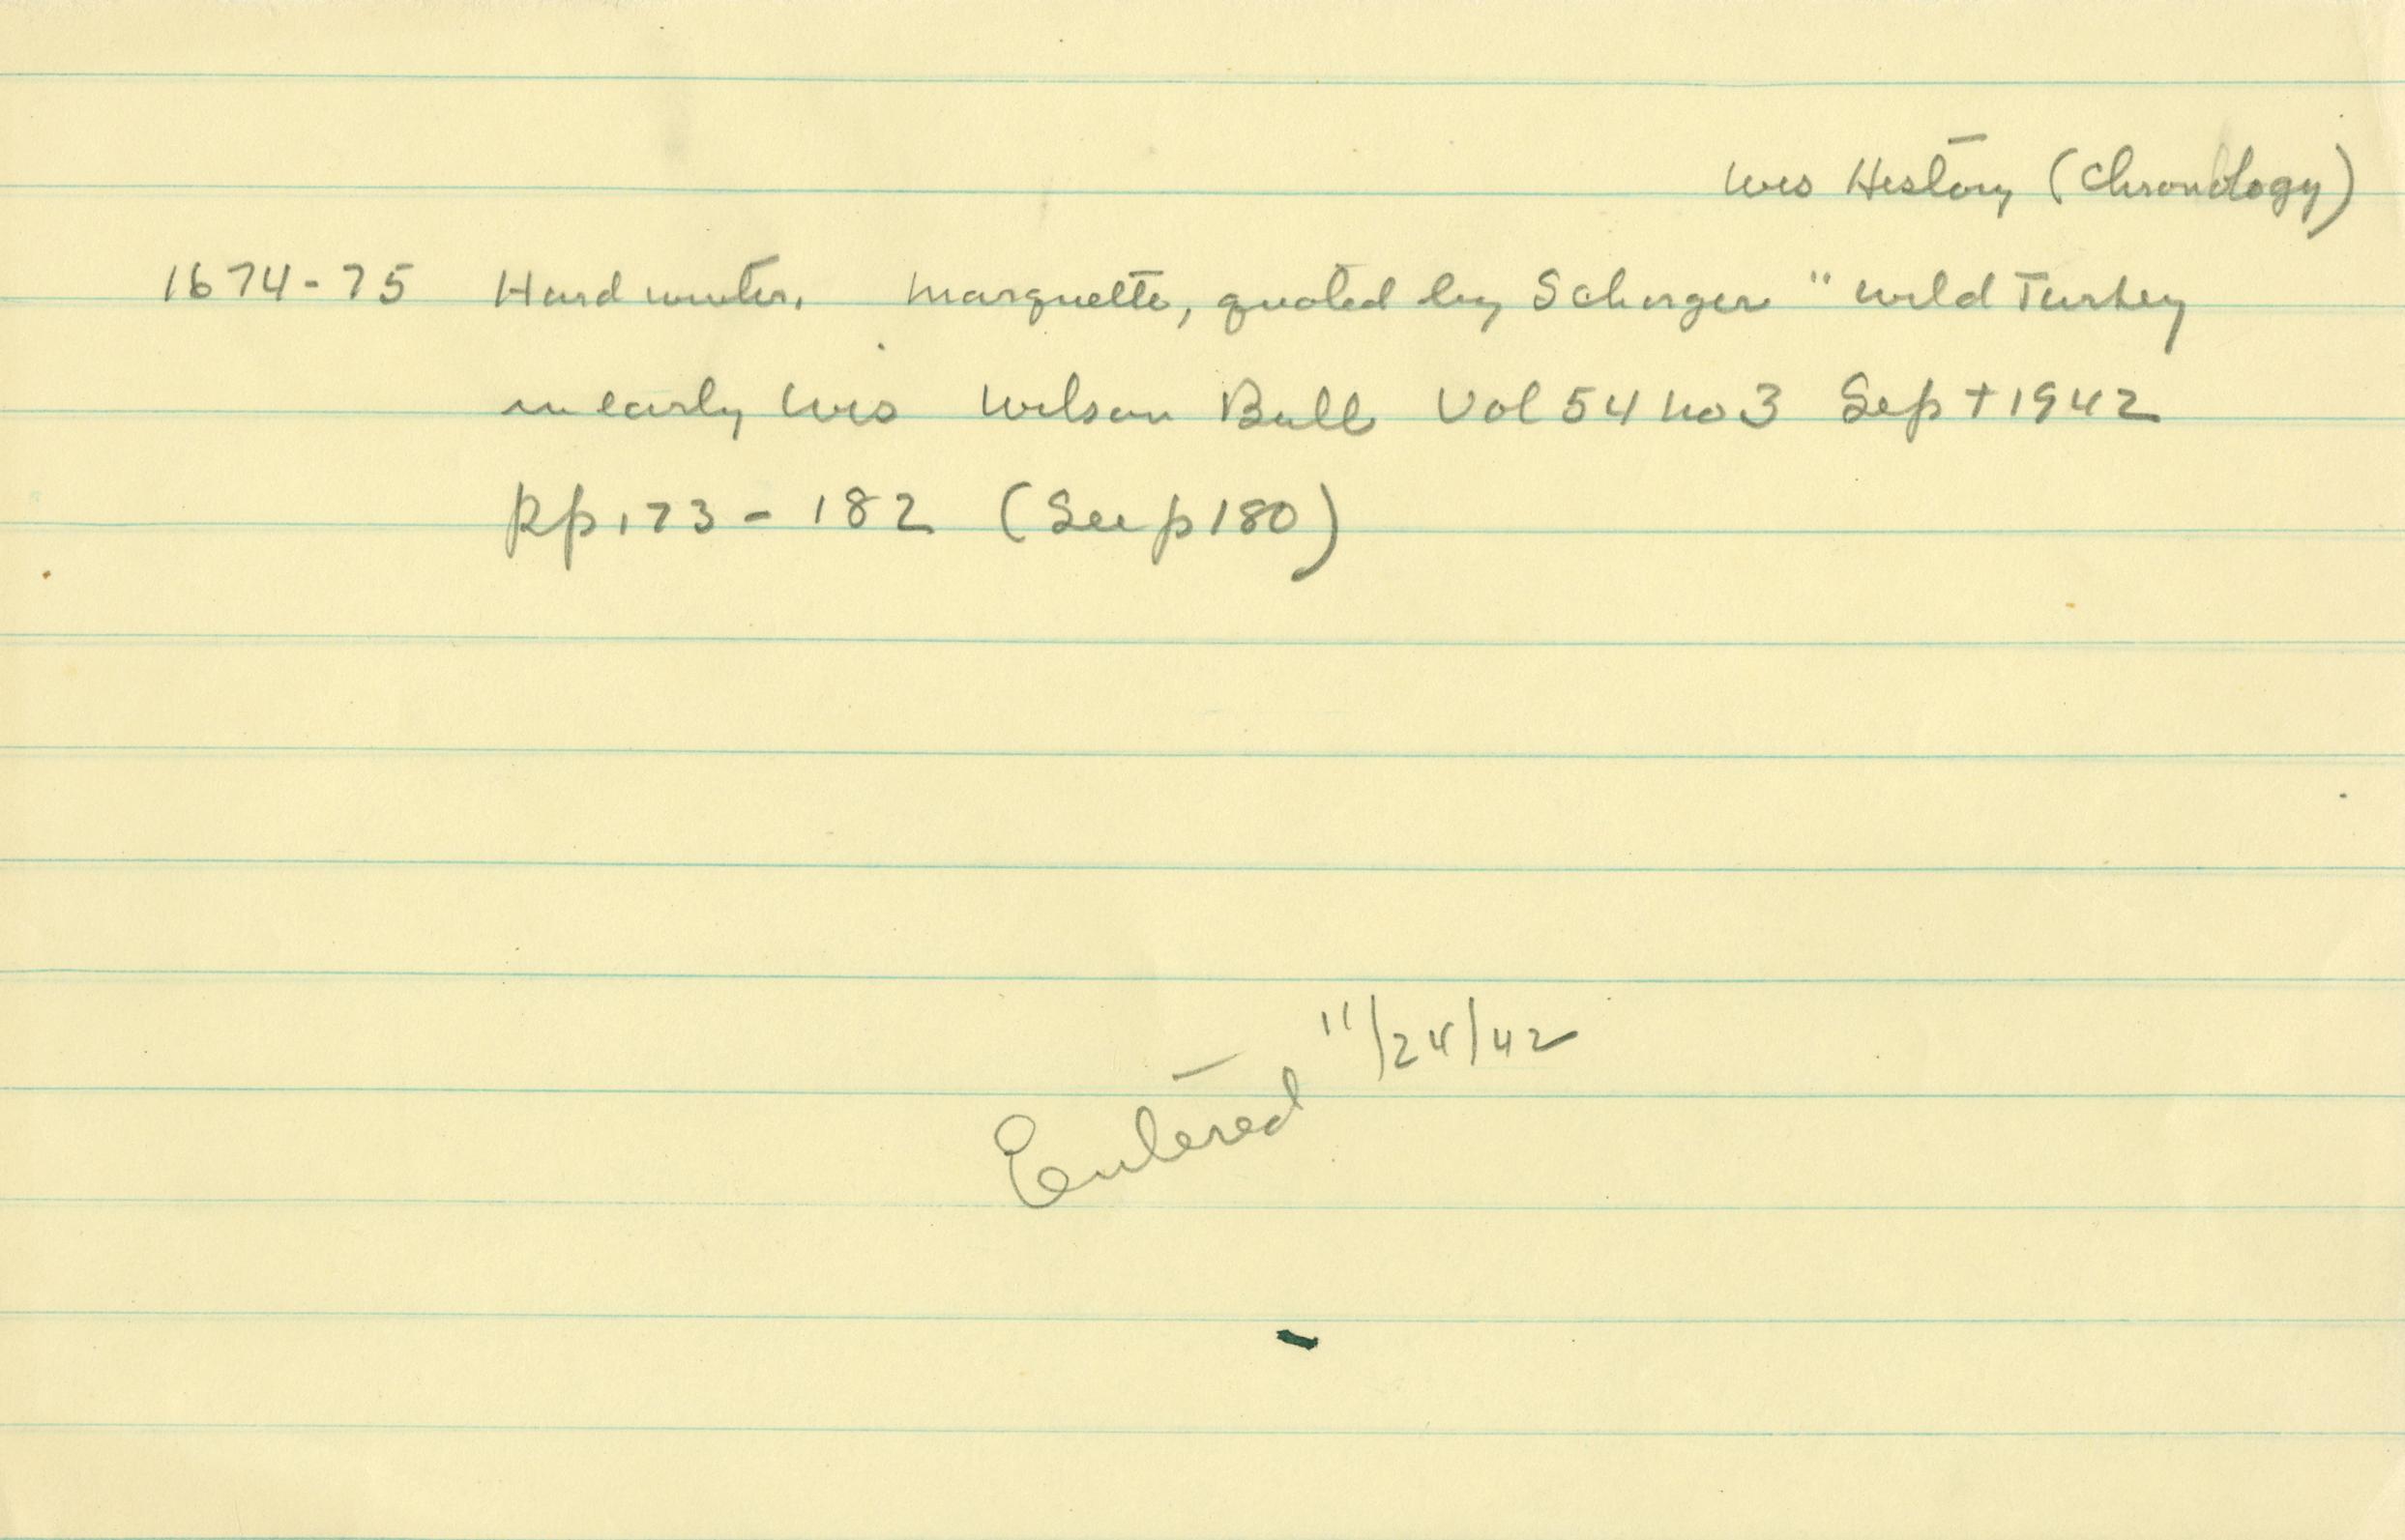 Wis History (Chronology)
1674-75 Hard winter. Marquette, quoted by Schorger "Wild Turkey
in early Wis Wilson Bull Vol 54 no 3 Sept 1942
pp 173-182 (See p 180)
Entered 11/24/42